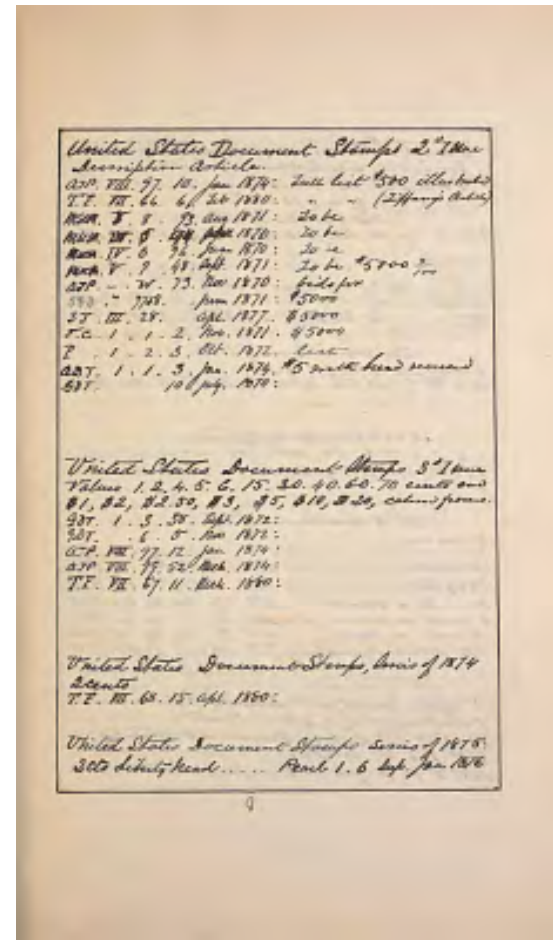 United States Document Stamps 2d Issue
Description Article.
AJP. VIII. 97. 10. Jan 1874: Full list $500 illustrated
T.F. VII. 66 6. Feb 1880: " " (Tiffany's Article)
V 8 93 Aug 1871: To be
1870: To be
IV 6 1870:
V. 9. 48. Sept. 1871: To be $5000
AJP. - W. 73. Nov 1870: bids for
7708. June 1871: $5000
ST. III. 28. Apl. 1877. $5000
T.C. 1. 1. 2. Nov. 1871. $5000
P. 1. 2. 3. Oct. 1872. list
1. 1. 3. Jan. 1874. $5 with head reversed
10 July. 1870:
United States Document Stamps 3d Issue
Values 1. 2. 4. 5. 6. 15. 30. 40. 60. 70 cents and
$1, $2, $2.50, $3, $5, $10, $20, colored
1. 3. 35. Sept. 1872:
6. 5. Nov 1872:
AJP. VIII. 97. 12. Jan 1874:
AJP. VIII. 99. 52. Mch. 1874:
T.F. VII. 67. 11. Mch. 1880:
United States Document Stamps, Series of 1874
2 cents
T.F. VII. 68. 15. Apl. 1880:
United States Document Stamps Series of 1875
2cts Liberty Head..... Pearl 1. 6 Sup. Jan 1876